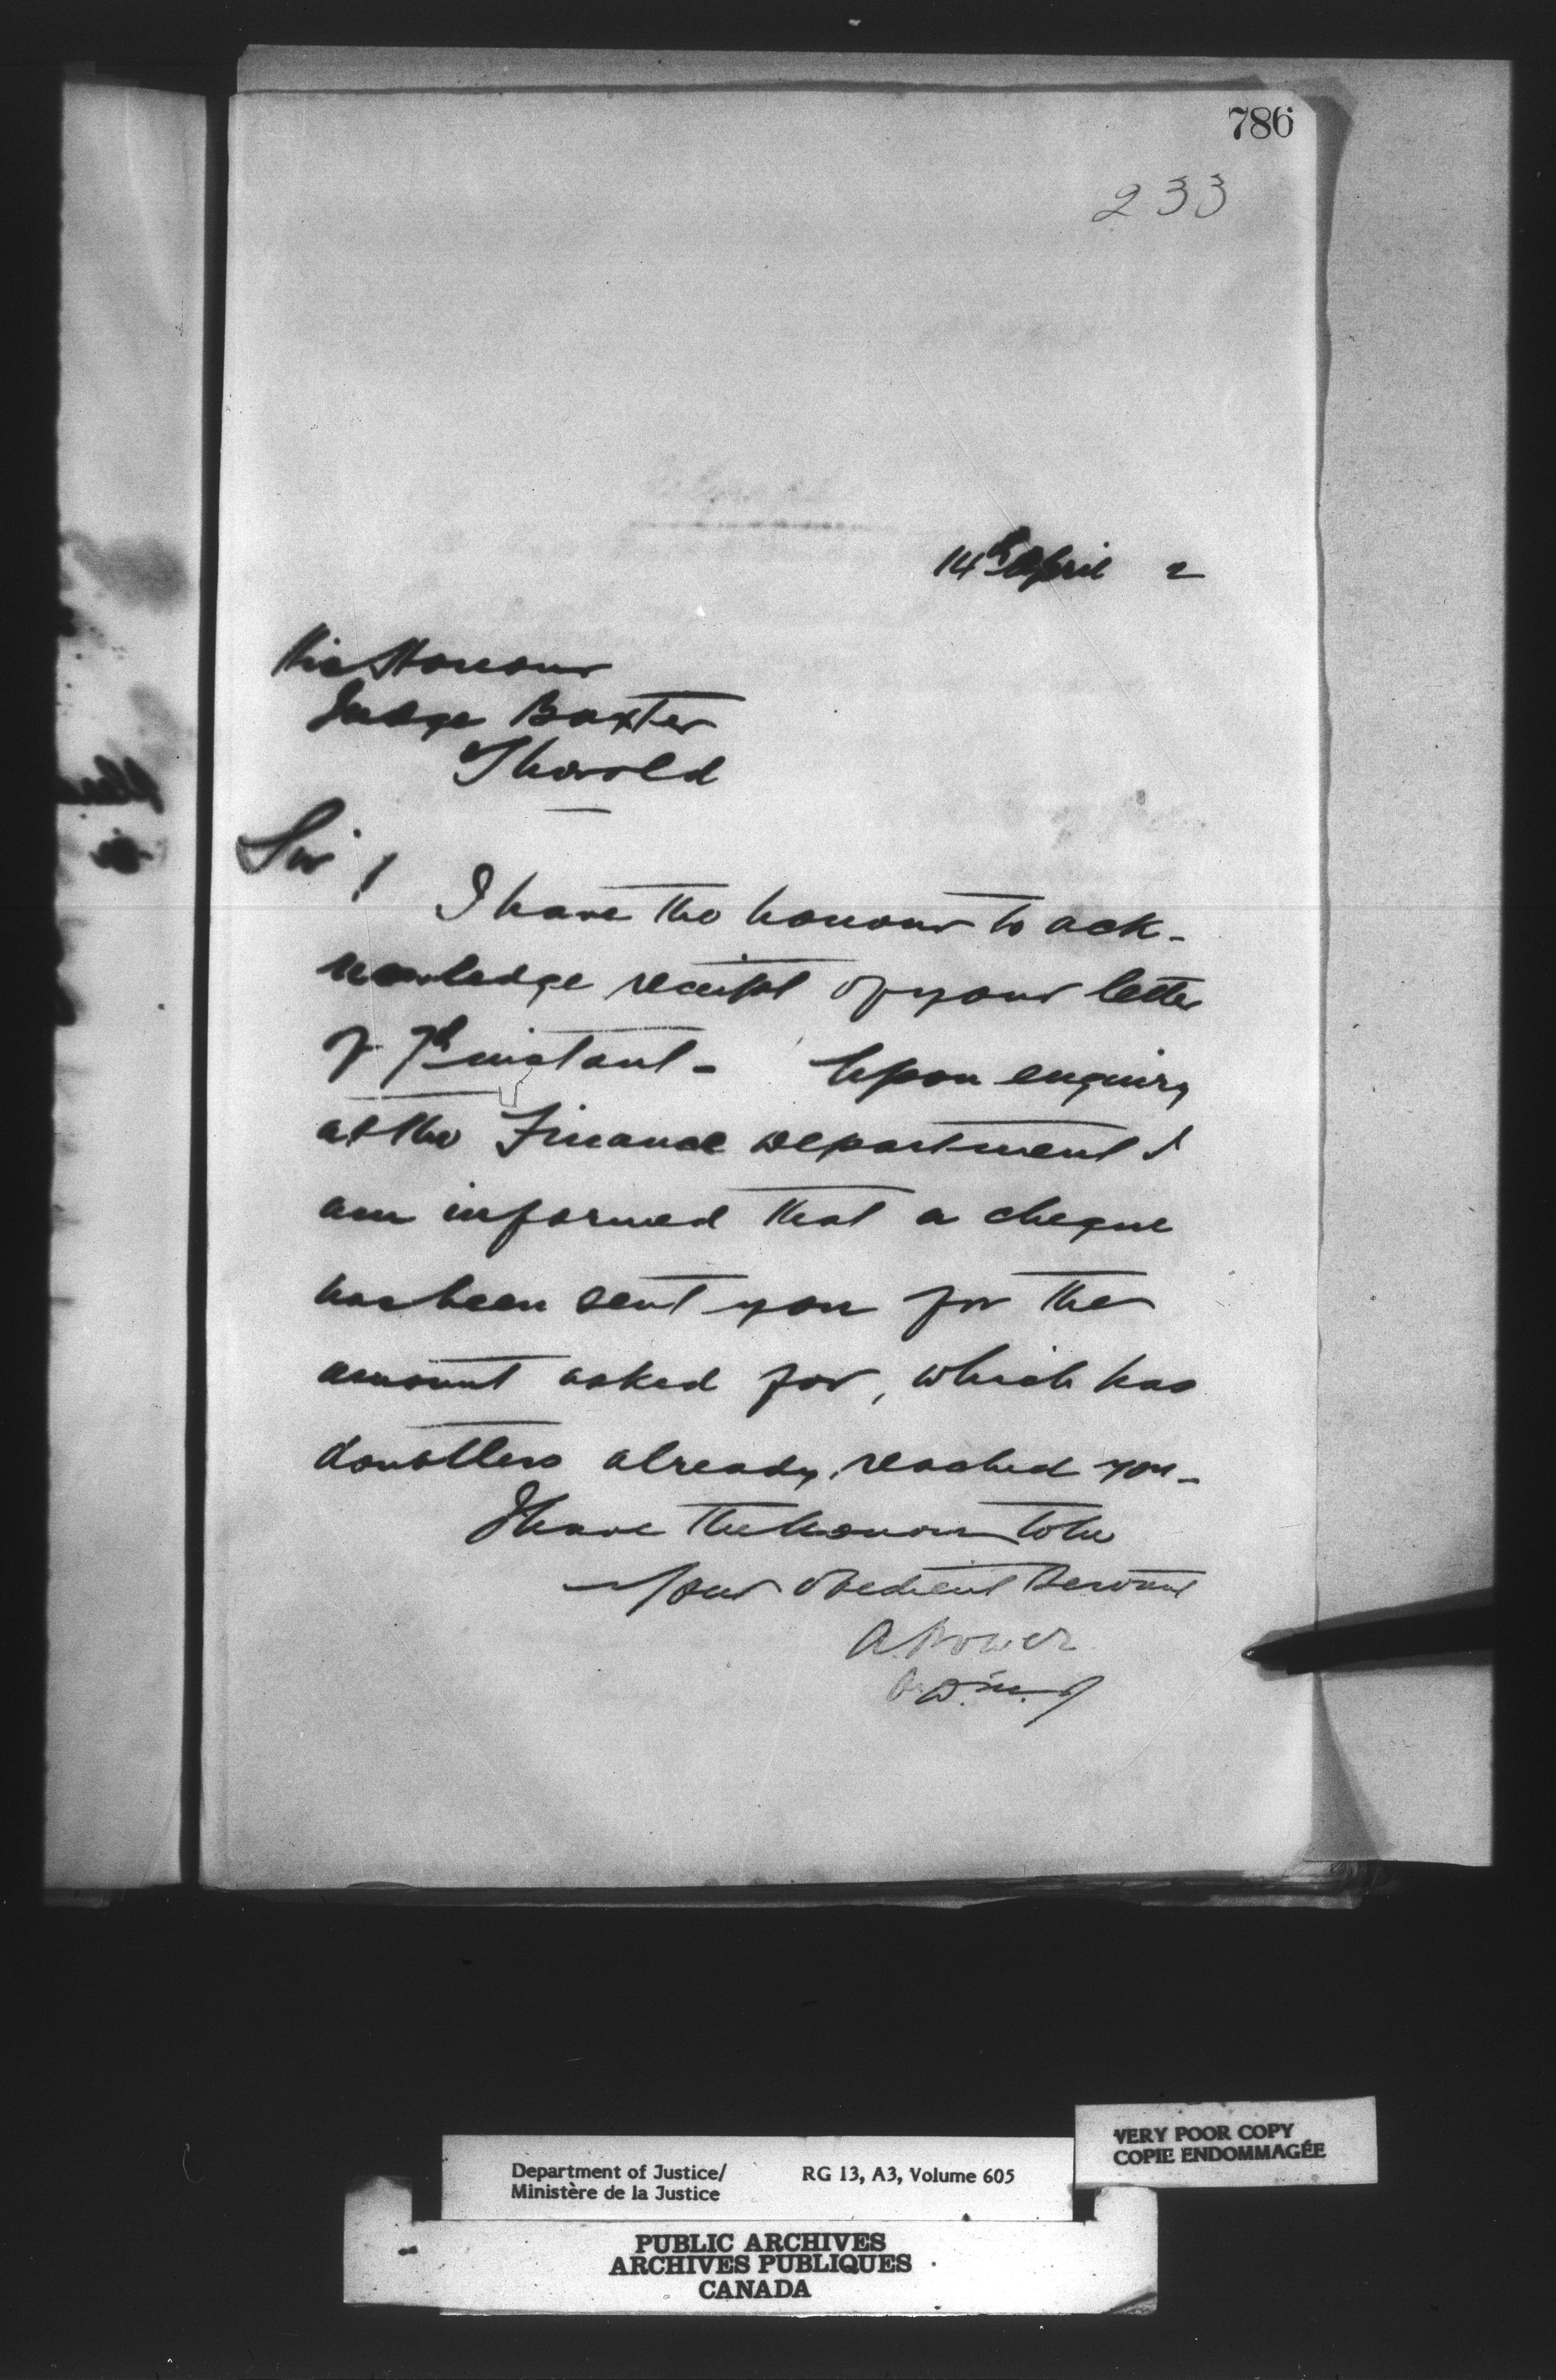 786
233
14th April 2
His Honour
Judge Baxter
Thorold
Sir!
I have the honour to ack-
nowledge receipt of your letter
of 7th instant - Upon enquiry
at the Finance Department I
am informed that a cheque
has been sent you for the
amount asked for, which has
doubtless already reached you -
I have the honour to be
Your obedient Servant
A. Power
D. M. J
VERY POOR COPY
COPIE ENDOMMAGÉE
Department of Justice/ RG 13, A3, Volume 605
Ministère de la Justice
PUBLIC ARCHIVES
ARCHIVES PUBLIQUES
CANADA